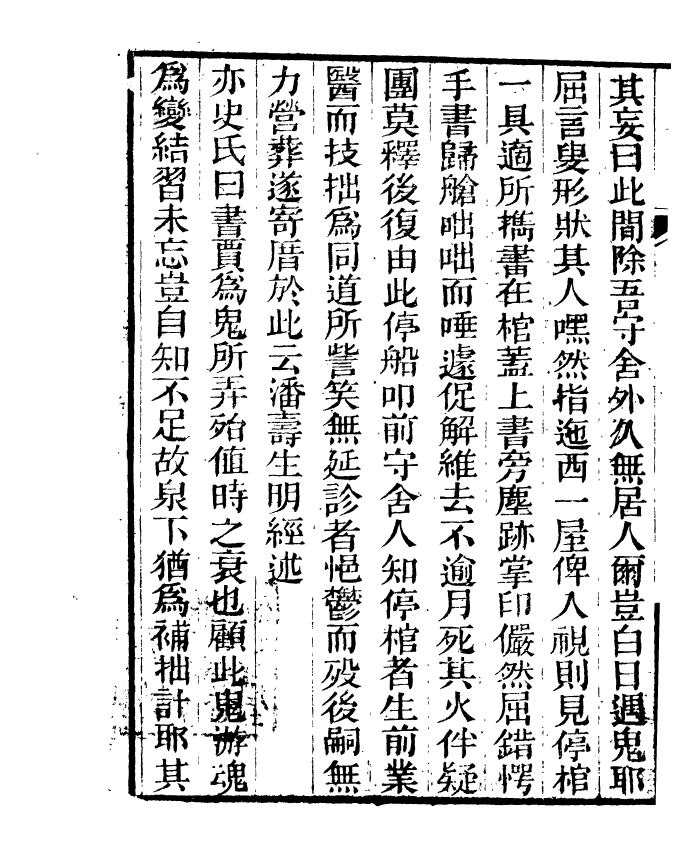 其妄曰此間除吾守舍外久無居人爾豈白日遇鬼耶
屈言叟形狀其人嘿然指迤西一屋俾入視則見停棺
一具適所攜書在棺蓋上書旁塵跡掌印儼然屈錯愕
手書歸艙咄咄而唾遽促解維去不逾月死其火伴疑
團莫釋後復由此停船叩前守舍人知停棺者生前業
醫而技拙爲同道所訾笑無延診者悒鬱而歿後嗣無
力營葬遂寄厝於此云潘壽生明經述
亦史氏曰書賈爲鬼所弄殆值時之衰也顧此鬼游魂
爲變結習未忘豈自知不足故泉下猶爲補拙計耶其